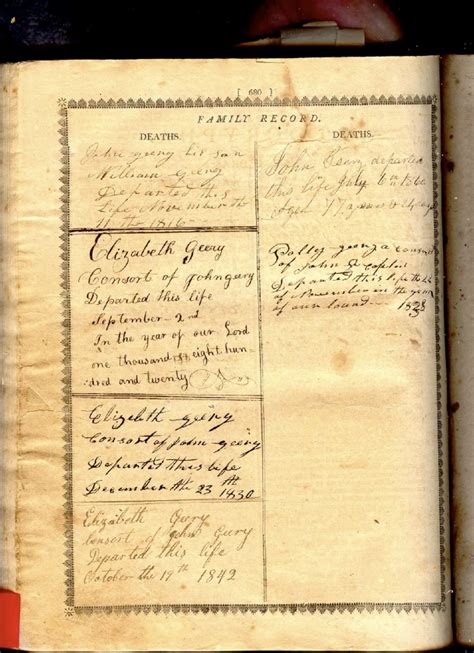 [ 680 ]
FAMILY RECORD.
DEATHS.
John geery his son
William Geery
Departed this
Life November th
1816
Elizabeth Geery
Consort of John geery
Departed this life
September 2nd
In the year of our Lord
one thousand eight hun
dred and twenty
Elizabeth geery
Consort of John geery
Departed this life
December the 23 th 1830
Elizabeth Gury
Consort of John Gury
Departed this life
October the 19th 1842
DEATHS.
John Geery departed
this life July
Aged 77 years
Polly consort
of John
Departed this life the
of November in the year
of our Lord